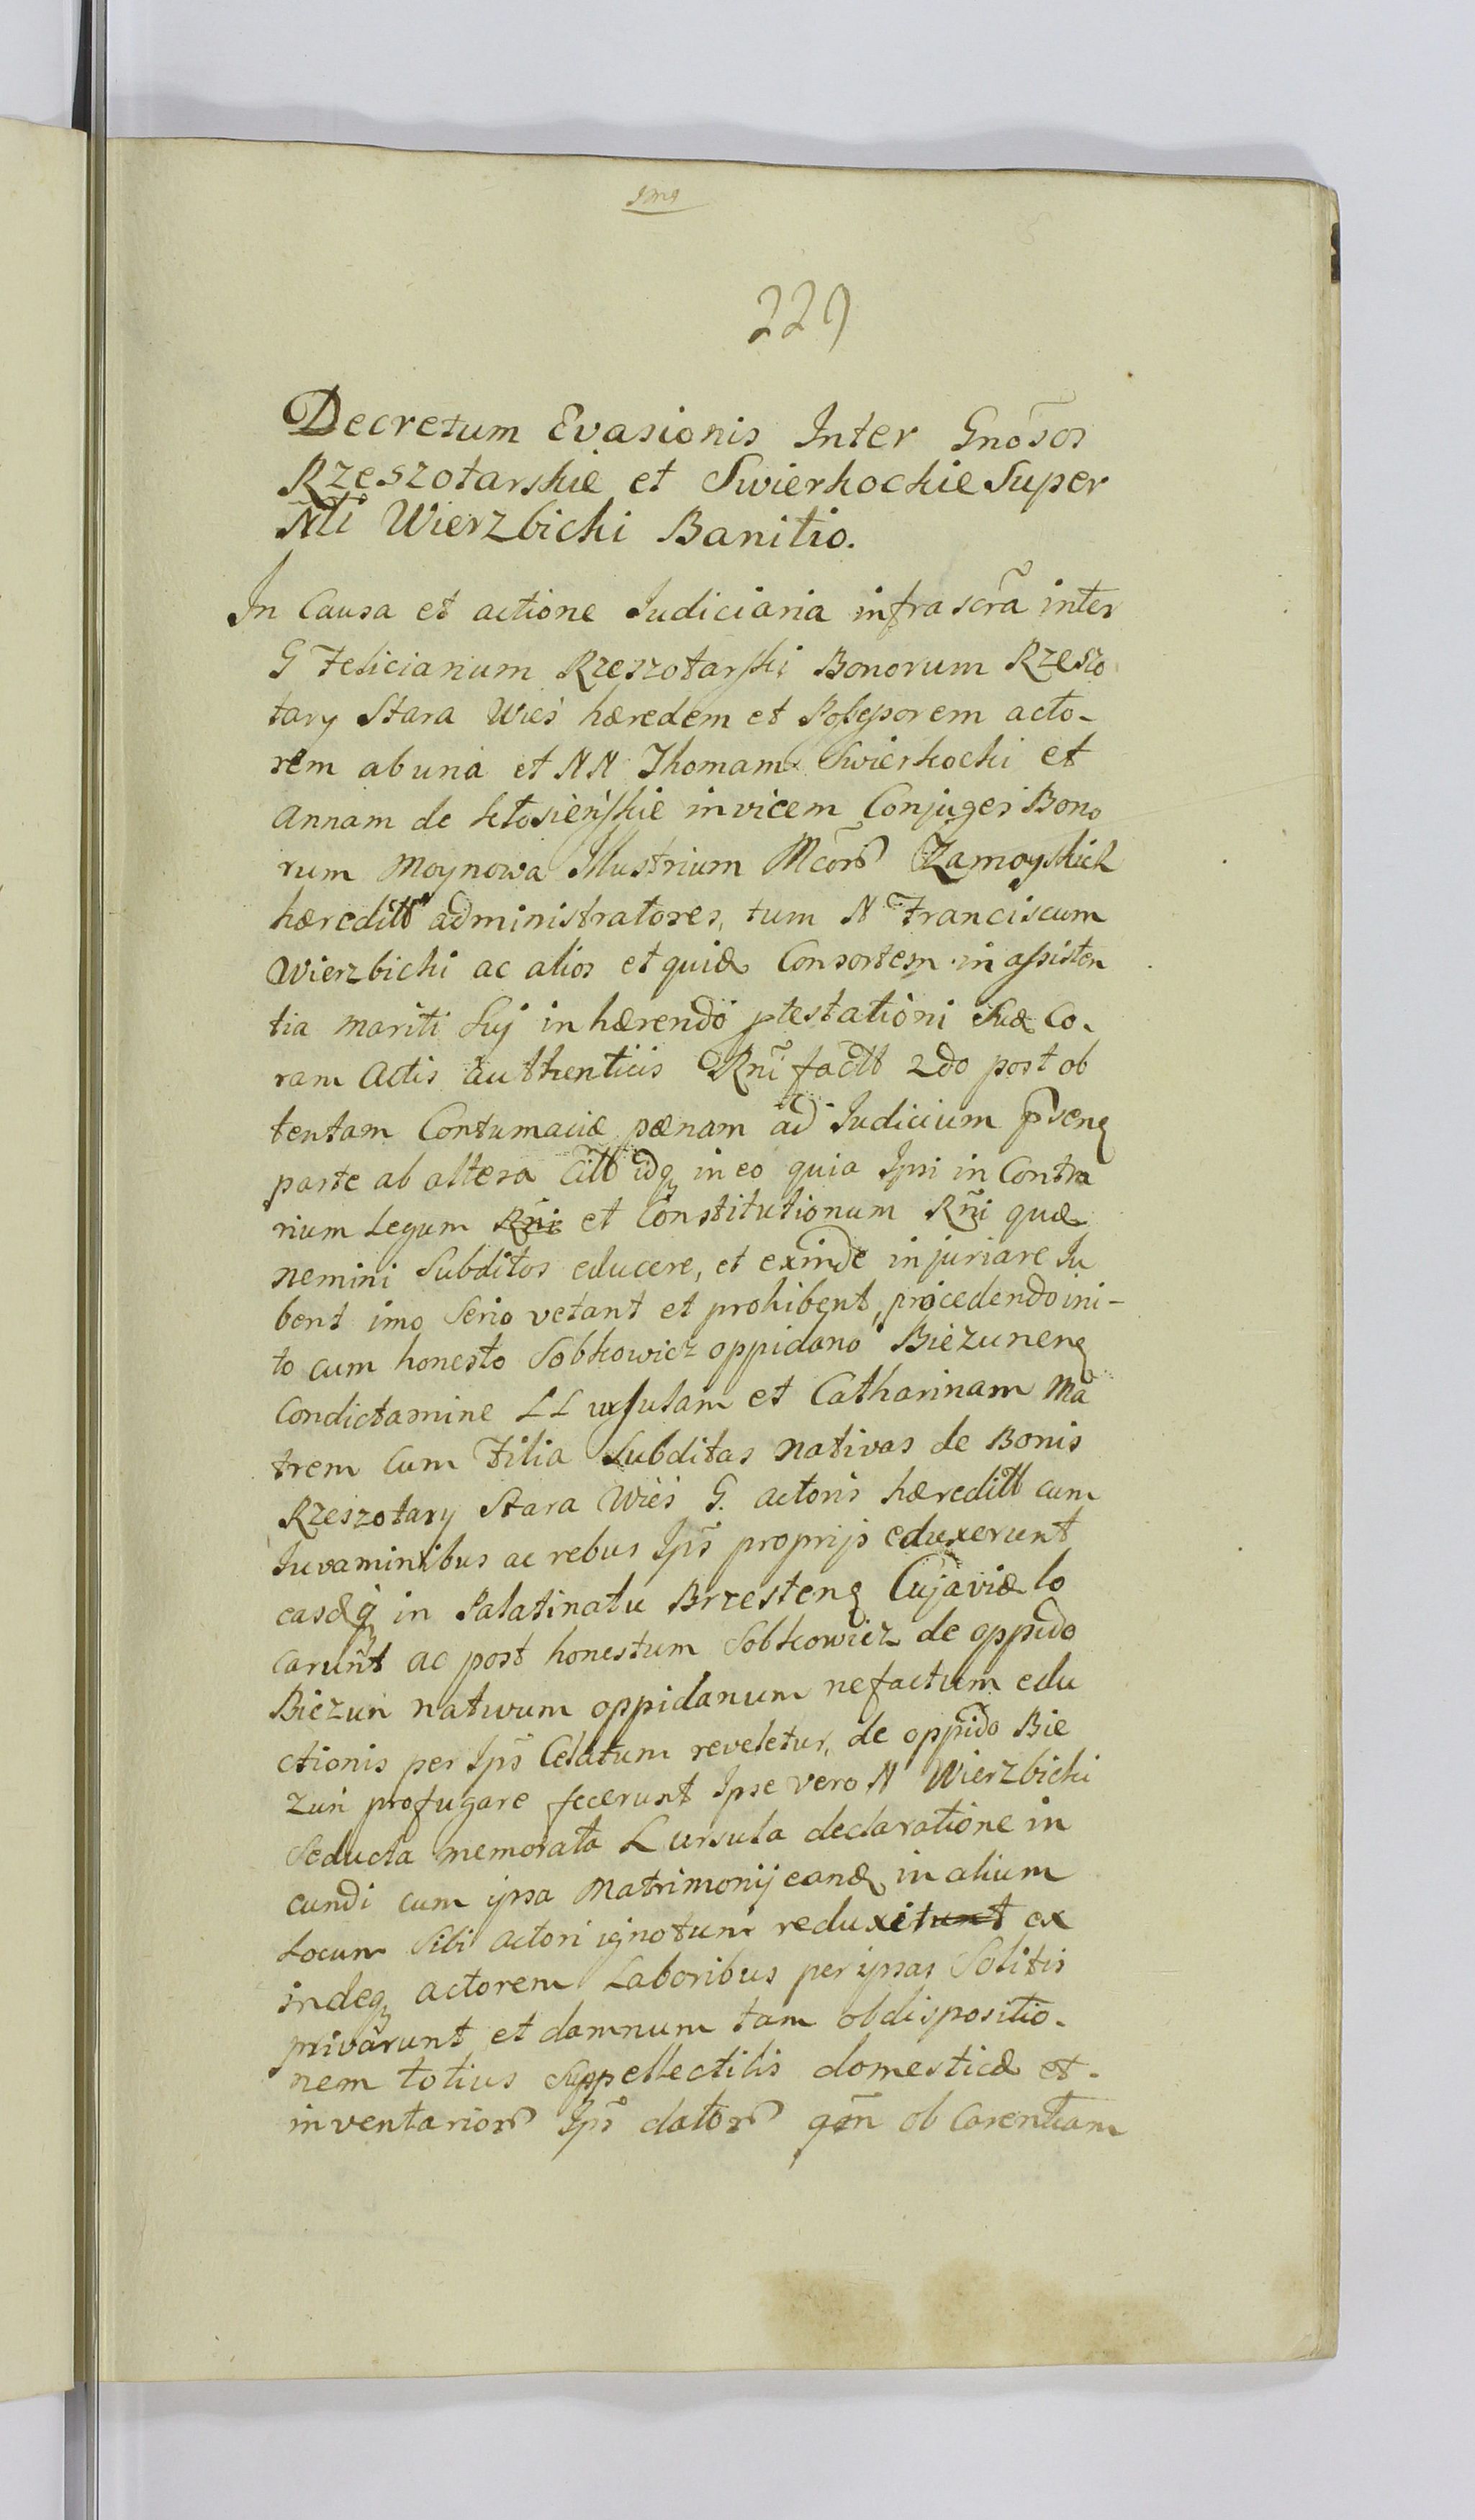 229
Decretum Evasionis Inter Gnõsos
Rzeszotarskie et Swierkockie Super
Nlĩ Wierzbicki Banitio.
In Causa et actione Iudiciaria infrascrã inter
G Felicianum Rzeszotarski Bonorum Rzeszo
tary Stara Wieś hæredem et Possessorem acto-
rem ab una et NN Thomam Swierkocki et
Annam de Kłosieńskie invicem Conjuges Bono
rum Moynowa Illustrium Mcor Zamoyskich
hæreditt administratores, tum N Franciscum
Wierzbicki ac alios et quid Consortem in assisten
tia mariti Suj inhærendo ptestationi Suæ Co-
ram Actis authenticis Rnĩ factt 2do post ob
tentam Contumaciæ pænam ad Iudicium pñseng
parte ab altera Citt idq in eo quia Ipsi in Contra
rium Legum Rñi et Constitutionum Rñi quæ
nemini Subditos educere, et exinde injuriare Iu
bent imo Serio vetant et prohibent, procedendo ini-
to cum honesto Sobkowicz oppidano Bieżuneng
Condictamine LL ursulam et Catharinam Ma
trem Cum Filia Subditas nativas de Bonis
Rzeszotary Stara Wieś G. actoris hæreditt cum
Iuvaminibus ac rebus Ips̃ proprijs eduxerunt
easdq in Palatinatu Brzesteng Cujaviæ lo
carunt ac post honestum Sobkowicz de oppido
Bieżuń nativum oppidanum ne factum edu
ctionis per Ips̃ Celatum reveletur, de oppido Bie
żuń profugare fecerunt Ipse vero N Wierzbicki
Seducta memorata L ursula declaratione in
eundi cum ipsa Matrimonij eand in alium
Locum Sibi actori ignotum reduxitunt ex
indeq actorem Laboribus per ipsas Solitis
privarunt et damnum tam ob dispositio-
nem totius Suppellectilis domesticæ et
inventarior Ips̃ dator qam ob Carentiam